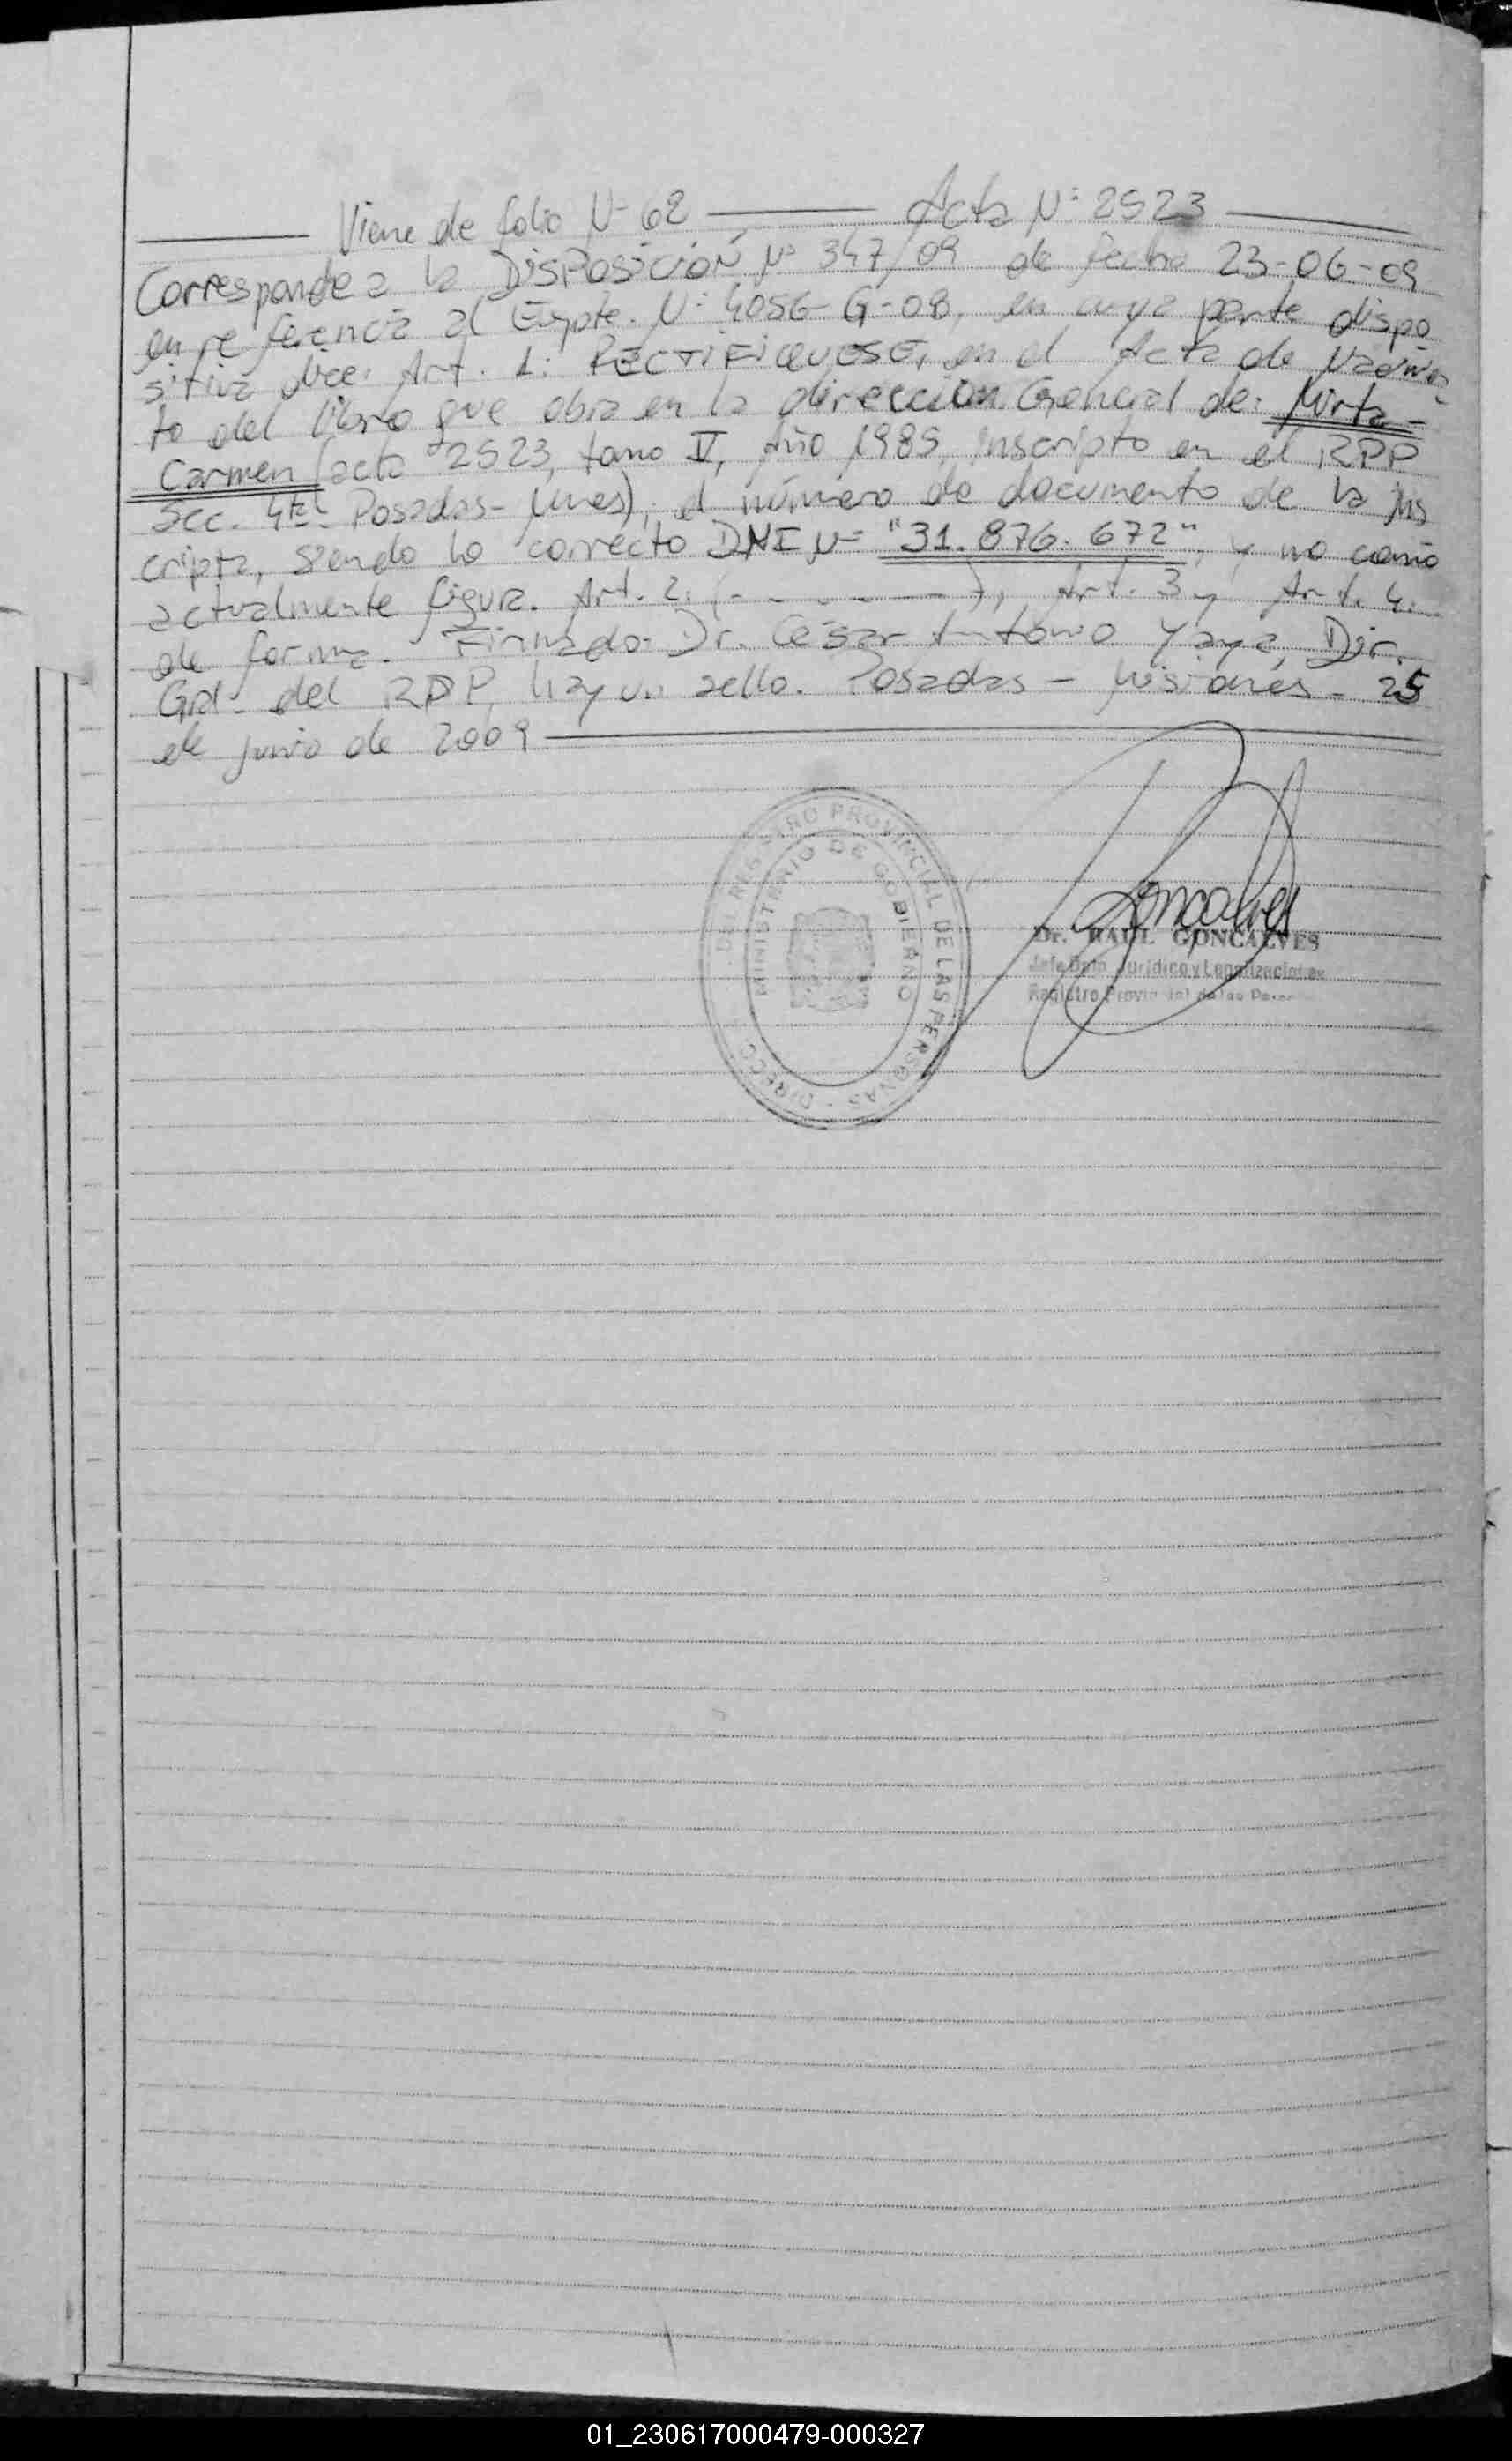 Viene de folio Nº 62 ——— Acta Nº 2523 ———
Corresponde a la DISPOSICIÓN Nº 347/09 de fecha 23-06-09
en referencia al Expte. Nº 4056-G-08, en cuya parte dispo
sitiva dice: Art. 1: RECTIFIQUESE, en el Acta de Nacimien
to del libro que obra en la dirección General de: Mirta-
Carmen (acta 2523, tomo IV, Año 1985, inscripto en el RPP
Sec. 4ta. Posadas- Mnes), el número de documento de la ins
cripta, siendo lo correcto DNI Nº "31.876.672", y no como
actualmente figura. Art. 2: (- - - - - - -), Art. 3 y Art. 4:
de forma. Firmado: Dr. César Antonio Yaya, Dir.
Gral. del RPP, Hay un sello. Posadas - Misiones - 25
de junio de 2009
DIRECC DEL REGISTRO PROVINCIAL DE LAS PERSONAS -
MINISTERIO DE GOBIERNO
Goncalves
Dr. RAUL GONCALVES
Jefe Dpto. Jurídico y Legalizaciones
Registro Provincial de las Perso
01_230617000479-000327